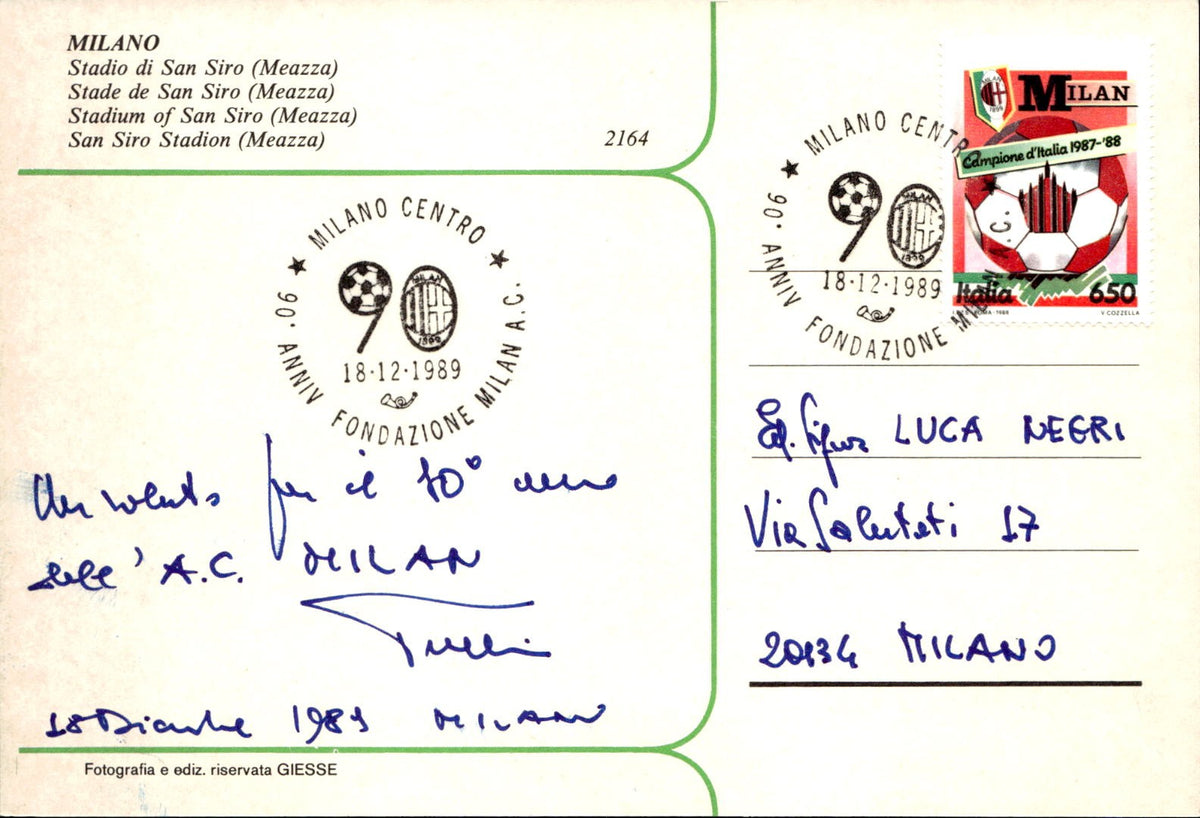 MILANO
Stadio di San Siro (Meazza)
Stade de San Siro (Meazza)
Stadium of San Siro (Meazza)
San Siro Stadion (Meazza)
2164
MILANO CENTRO
90
MILAN
1899
18·12·1989
90· ANNIV FONDAZIONE MILAN A.C.
MILANO CENTRO
90
MILAN
1899
18·12·1989
90· ANNIV FONDAZIONE MILAN A.C.
MILAN
1899
MILAN
Campione d'Italia 1987-'88
Italia 650
I.P.Z.S. ROMA - 1988 V. COZZELLA
per il 90°
dell' A.C. MILAN
18 Dicembre 1989 MILANO
Fotografia e ediz. riservata GIESSE
Eg. Signor LUCA NEGRI
Via Salutati 17
20134 MILANO